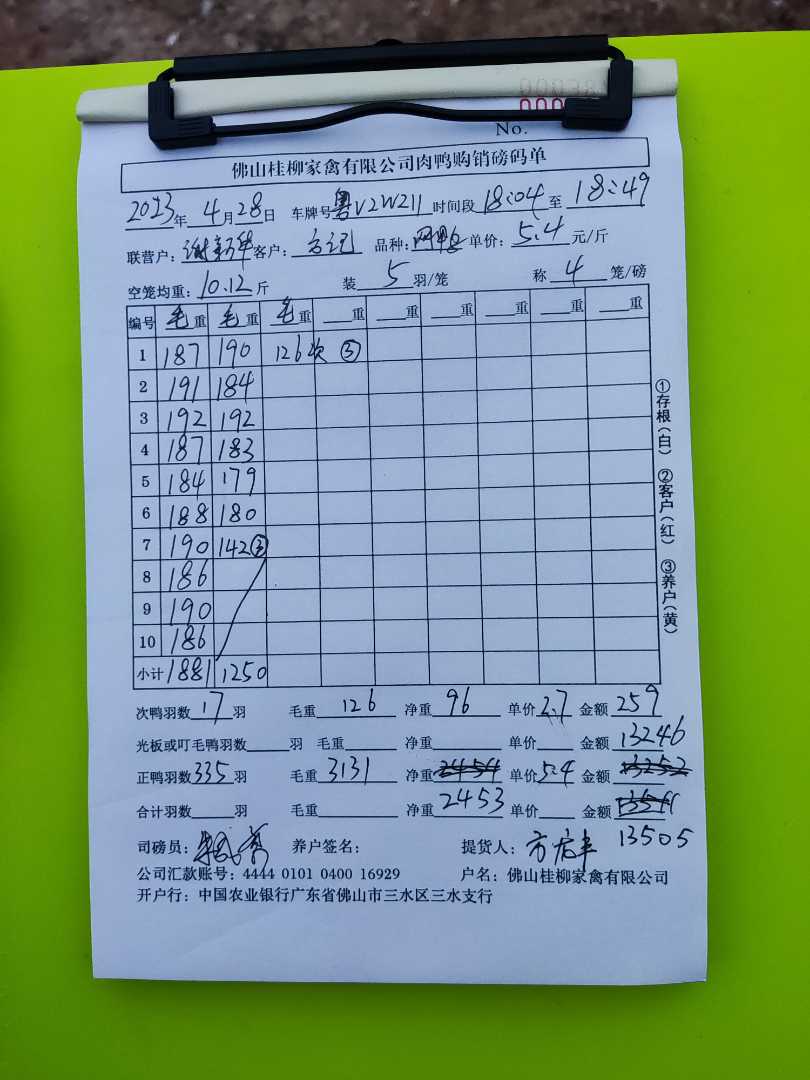 No.
佛山桂柳家禽有限公司肉鸭购销磅码单
2023年 4月28日 车牌号粤V2W211 时间段18:04至18:49
联营户：谢新华 客户：方记 品种： 单价：5.4元/斤
空笼均重：10.12斤 装5羽/笼 称4笼/磅
编号 毛重 毛重 毛重 重 重 重 重 重 重
1 187 190 126次 ③
2 191 184
3 192 192
4 187 183
5 184 179
6 188 180
7 190 142③
8 186
9 190
10 186
小计 1881 1250
①存根(白) ②客户(红) ③养户(黄)
次鸭羽数17羽 毛重126 净重96 单价2.7 金额259
光板或叮毛鸭羽数 羽 毛重 净重 单价 金额13246
正鸭羽数335羽 毛重3131 净重2454 单价5.4 金额13252
合计羽数 羽 毛重 净重2453 单价 金额
司磅员： 养户签名： 提货人： 13505
公司汇款账号：4444 0101 0400 16929 户名：佛山桂柳家禽有限公司
开户行：中国农业银行广东省佛山市三水区三水支行